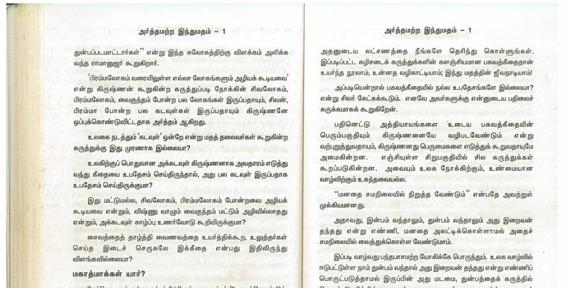 அர்த்தமற்ற இந்துமதம் – 1
துன்பப்படமாட்டார்கள்" என்று இந்த சுலோகத்திற்கு விளக்கம் அளிக்க
வந்த ராமானுஜர் கூறுகிறார்.
'பிரம்மலோகம் வரையிலுள்ள எல்லா லோகங்களும் அழியக் கூடியவை'
என்று கிருஷ்ணன் கூறுகின்ற கருத்துப்படி நோக்கின் சிவலோகம்,
பிரம்மலோகம், வைகுந்தம் போன்ற பல லோகங்கள் இருப்பதாயும், சிவன்,
பிரம்மா போன்ற பல கடவுள்கள் இருப்பதாயும் கிருஷ்ணனே
ஒப்புக்கொண்டுவிட்டதாக அர்த்தம் ஆகிறது.
உலகை நடத்தும் 'கடவுள்' ஒன்றே என்று மதத் தலைவர்கள் கூறுகின்ற
கருத்துக்கு இது முரணாக இல்லையா?
உலகிற்குப் பொதுவான அக்கடவுள் கிருஷ்ணனாக அவதாரம் எடுத்து
வந்து கீதையை உபதேசம் செய்திருந்தால், அது பல கடவுள் இருப்பதாக
உபதேசம் செய்திருக்குமா?
இது மட்டுமல்ல, சிவலோகம், பிரம்மலோகம் போன்றவை அழியக்
கூடியவை என்றும், விஷ்ணு வாழும் வைகுந்தம் மட்டும் அழிவில்லாதது
என்றும், அக்கடவுள் காழ்ப்பு உணர்வோடு கூறியிருக்குமா?
சைவத்தைத் தாழ்த்தி வைணவத்தை உயர்த்திக்கூற, உலுத்தர்கள்
செய்த இடைச் செருகலே இக்கீதை என்பது இதிலிருந்து
விளங்கவில்லையா?
மகாத்மாக்கள் யார்?
அர்த்தமற்ற இந்துமதம் – 1
அதனுடைய லட்சணத்தை நீங்களே தெரிந்து கொள்ளுங்கள்.
இப்படிப்பட்ட கழிசடைக் கருத்துக்களின் களஞ்சியமான பகவத்கீதைதான்
உயர்ந்த நூலாம், உன்னத வழிகாட்டியாம்; இந்து மதத்தின் ஜீவநாடியாம்!
அப்படியென்றால் பகவத்கீதையில் நல்ல உபதேசங்களே இல்லையா?
என்று சிலர் கேட்கக்கூடும். எனவே அவர்களுக்கு என்னுடைய பதிலைச்
சுருக்கமாகக் கூறுகிறேன்.
பதினெட்டு அத்தியாயங்களை உடைய பகவத்கீதையின்
பெரும்பகுதியும் கிருஷ்ணனையே வழிபடவேண்டும் என்று
வற்புறுத்துவதாயும், கிருஷ்ணனது பெருமைகளை எடுத்துக் கூறுவதாயுமே
அமைகின்றன. எஞ்சியுள்ள சிறுபகுதியில் சில கருத்துக்கள்
கூறப்படுகின்றன. அவையும் உலக நோக்கிற்கும், உண்மையான
வாழ்விற்கும் உகந்தவையல்ல.
"மனதை சமநிலையில் நிறுத்த வேண்டும்" என்பதே அவற்றுள்
முக்கியமானது.
அதாவது, இன்பம் வந்தாலும், துன்பம் வந்தாலும் அது இறைவன்
தந்தது என்று எண்ணி, மனதை அலட்டிக்கொள்ளாமல் அதைச்
சமநிலையில் வைத்துக்கொள்ள வேண்டுமாம்.
இப்படி வாழ்வது பந்தபாசமற்ற யோகிக்கே பொருந்தும். உலக வாழ்வில்
ஈடுபட்டுள்ள நாம் துன்பம் வந்தால் அது இறைவன் தந்தது என்று எண்ணிப்
பொறுப்படுத்தாமல் இருப்பின் அது மடமை, துன்பத்தைக் கருத்தில்